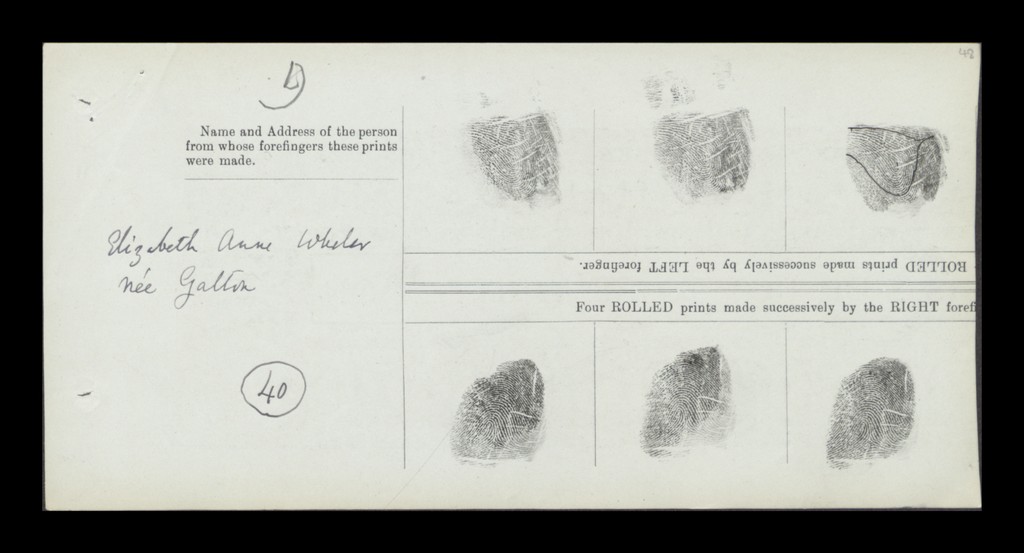 48
D
Name and Address of the person
from whose forefingers these prints
were made.
Elizabeth Anne Wheler
née Galton
40
ROLLED prints made successively by the LEFT forefinger.
Four ROLLED prints made successively by the RIGHT forefi